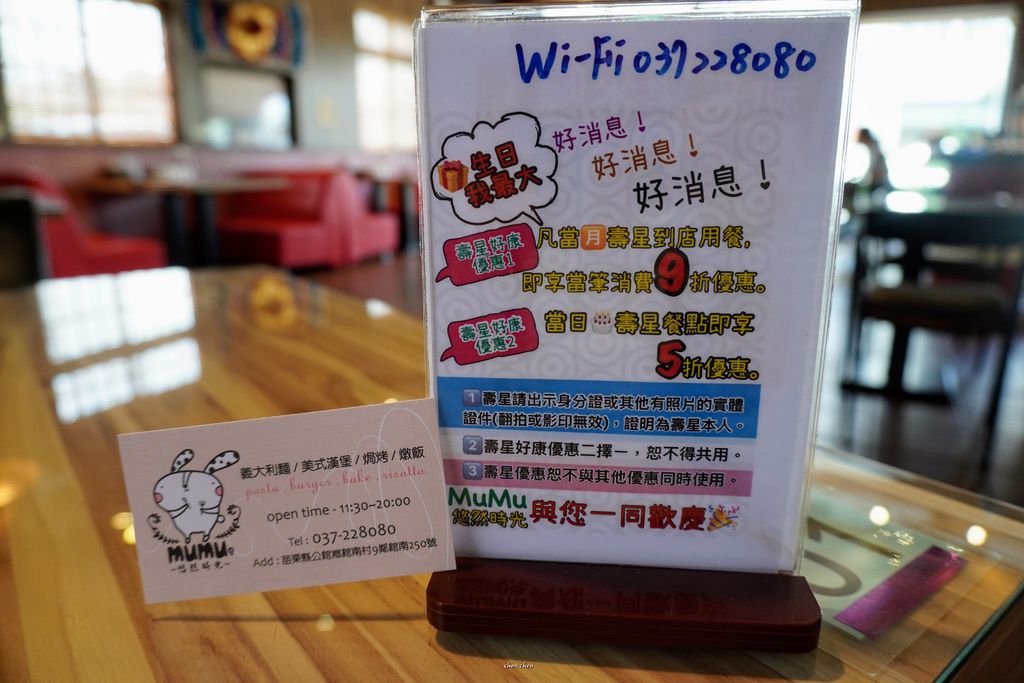 Wi-Fi 037228080
生日
我最大
好消息!
好消息!
好消息!
壽星好康
優惠1
凡當月壽星到店用餐,
即享當筆消費9折優惠。
壽星好康
優惠2
當日壽星餐點即享
5折優惠。
1 壽星請出示身分證或其他有照片的實體
證件(翻拍或影印無效),證明為壽星本人。
2 壽星好康優惠二擇一,恕不得共用。
3 壽星優惠恕不與其他優惠同時使用。
MuMu
悠然時光 與您一同歡慶
義大利麵/美式漢堡/焗烤/燉飯
pasta, burger, bake, risotto
open time - 11:30~20:00
Tel : 037-228080
Add : 苗栗縣公館鄉館南村9鄰館南250號
MUMU
-悠然時光-
chen chen